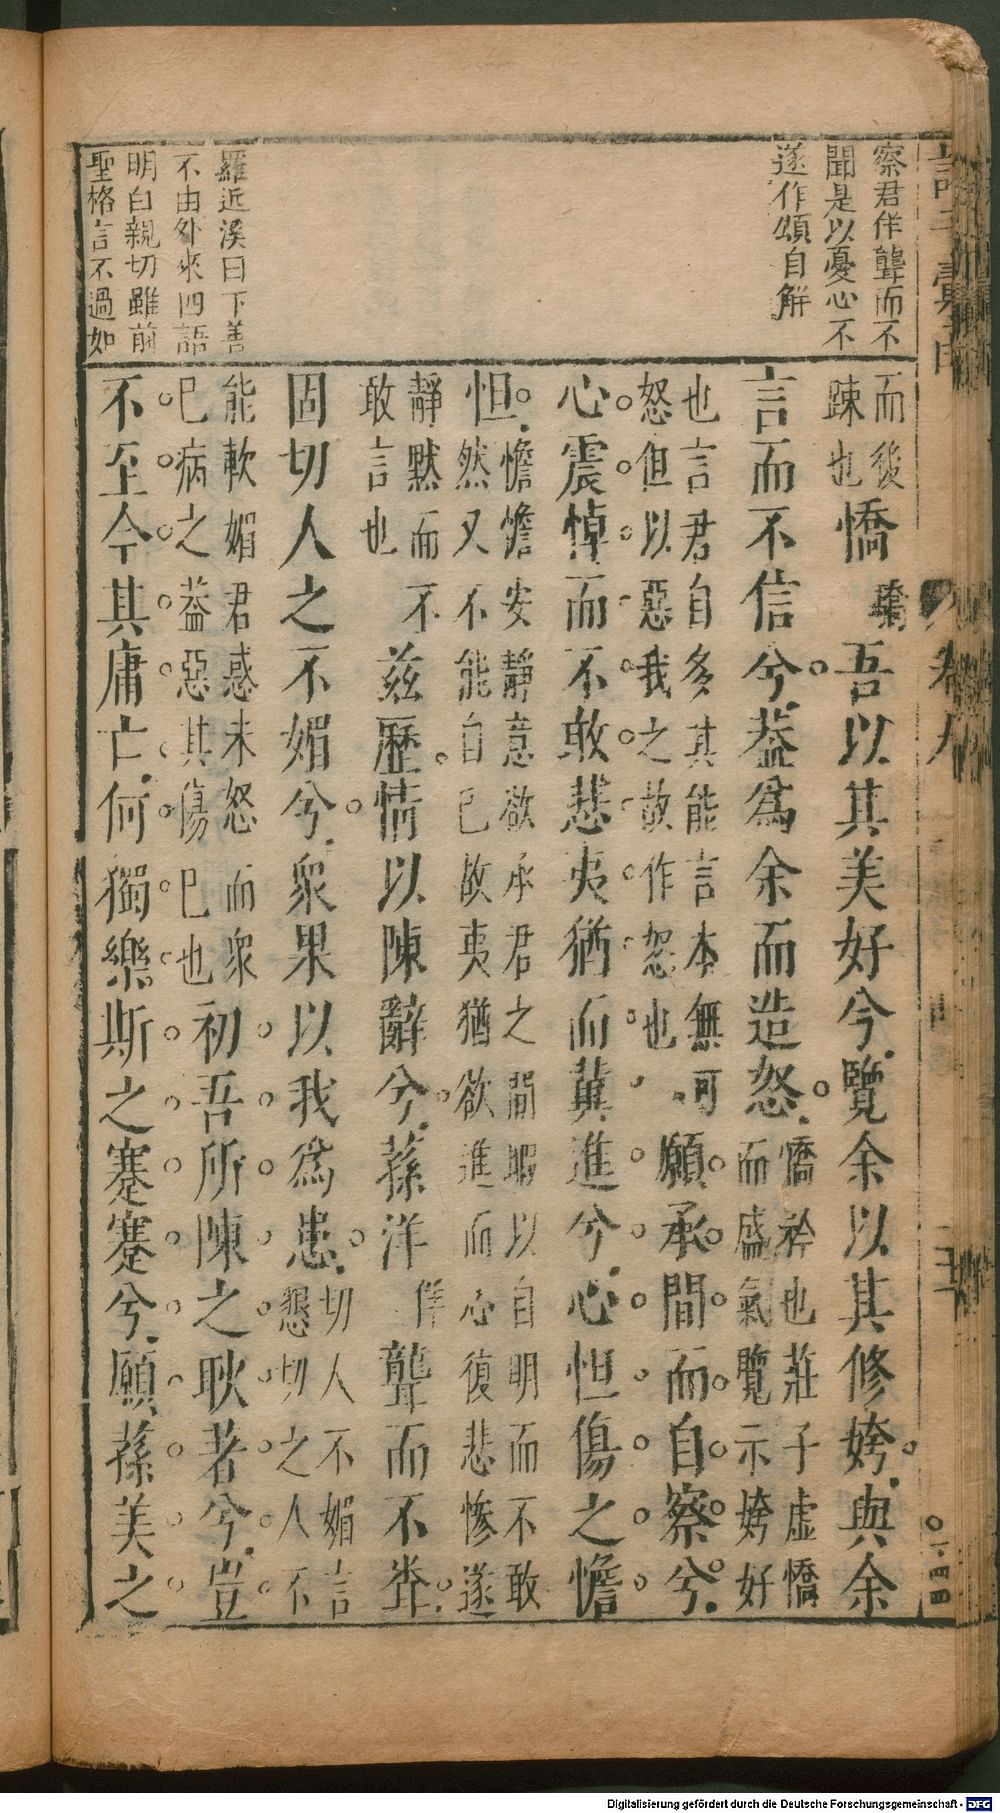 察君佯聾而不
聞是以憂心不
遂作頌自解
羅近溪曰下善
不由外來四語
明白親切雖前
聖格言不過如
而後
踈也
憍
驕
吾以其美好兮覽余以其修姱與余
言而不信兮葢爲余而造怒
憍矜也莊子虛憍
而盛氣覽示姱好
也言君自多其能言本無可
怒但以惡我之故作怒也
願承間而自察兮
心震悼而不敢悲夷猶而兾進兮心怛傷之憺
怛
憺憺安靜意欲承君之間暇以自明而不敢
然又不能自已故夷猶欲進而心復悲慘遂
靜默而不
敢言也
兹歷情以陳辭兮蓀洋
佯
聾而不
固切人之不媚兮衆果以我爲患
切人不媚言
懇切之人不
能軟媚君惑未怒而衆
已病之葢惡其傷已也
初吾所陳之耿著兮豈
不至今其庸亡何獨樂斯之蹇蹇兮願蓀美之
卷九
Digitalisierung gefördert durch die Deutsche Forschungsgemeinschaft - DFG